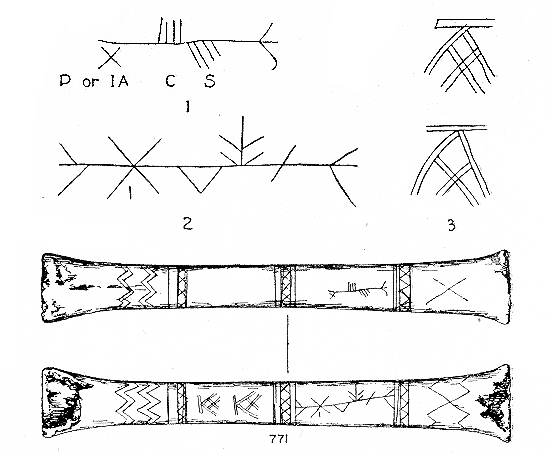 D or IA C S
1
1
2
3
771